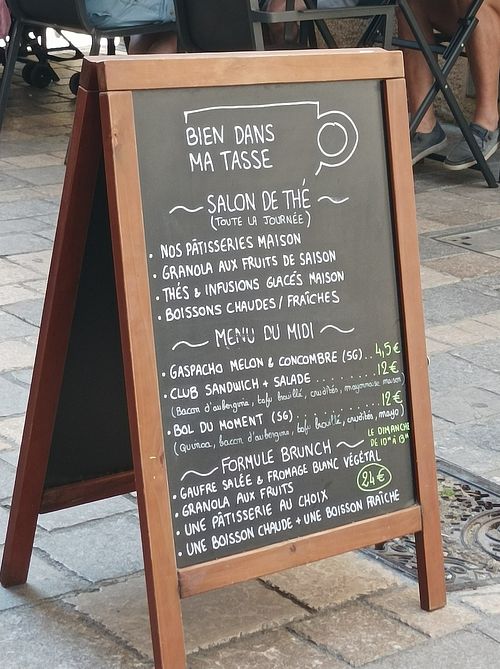 BIEN DANS
MA TASSE
SALON DE THÉ
(TOUTE LA JOURNÉE)
• NOS PÂTISSERIES MAISON
• GRANOLA AUX FRUITS DE SAISON
• THÉS & INFUSIONS GLACÉS MAISON
• BOISSONS CHAUDES / FRAÎCHES
MENU DU MIDI
• GASPACHO MELON & CONCOMBRE (SG)..4,5€
• CLUB SANDWICH + SALADE ........12€
(Bacon d'aubergine, tofu brouillé, crudités, mayonnaise maison)
• BOL DU MOMENT (SG) ..........12€
(quinoa, bacon d'aubergine, tofu brouillé, crudités, mayo)
LE DIMANCHE
DE 10H À 13H
FORMULE BRUNCH
• GAUFRE SALÉE & FROMAGE BLANC VÉGÉTAL
• GRANOLA AUX FRUITS 24€
• UNE PÂTISSERIE AU CHOIX
• UNE BOISSON CHAUDE + UNE BOISSON FRAÎCHE